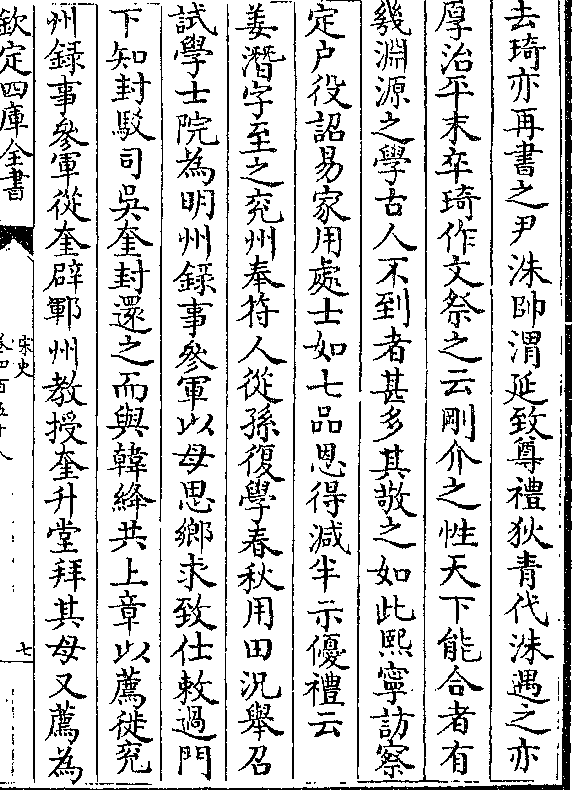 去琦亦再書之尹洙帥渭延致尊禮狄青代洙遇之亦
厚治平末卒琦作文祭之云剛介之性天下能合者有
幾淵源之學古人不到者甚多其敬之如此熙寧訪察
定户役詔易家用處士如七品恩得減半示優禮云
姜潛字至之兖州奉符人從孫復學春秋用田况舉召
試學士院為明州錄事參軍以母思鄉求致仕敕過門
下知封駮司吳奎封還之而與韓絳共上章以薦徙兖
州錄事參軍從奎辟鄆州教授奎升堂拜其母又薦為
欽定四庫全書
宋史
卷四百五十八
七